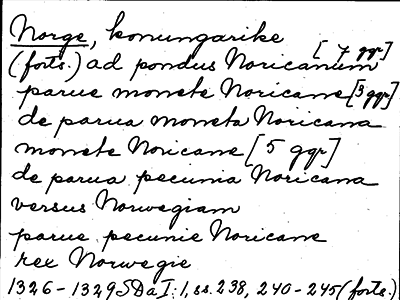 Norge, konungarike
(forts.) ad pondus Noricanum [7 ggr]
parue monete Noricane [3 ggr]
de parua moneta Noricana
monete Noricane [5 ggr]
de parua pecunia Noricana
versus Norwegiam
parue pecunie Noricane
rex Norwegie
1326-1329 SDa I:1, ss. 238, 240-245 (forts.)